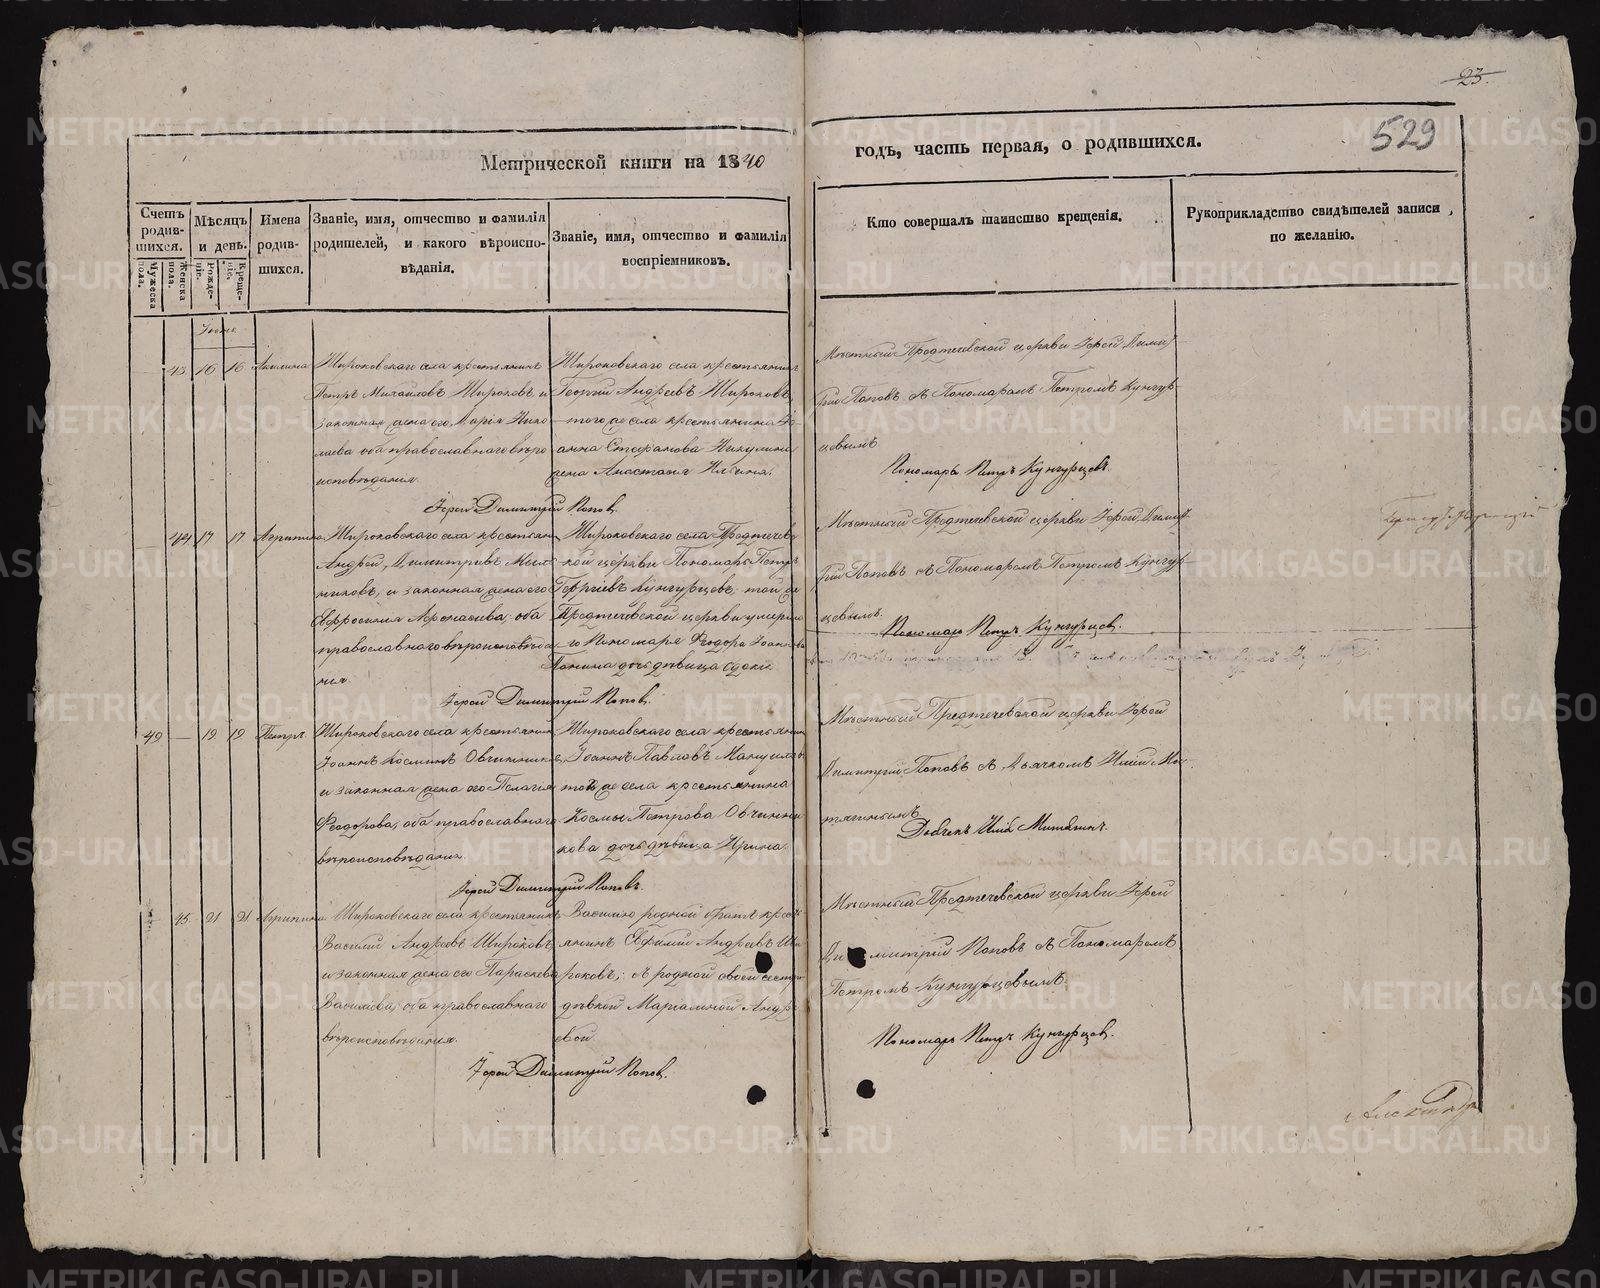 23.
529
Метрической книги на 1840
годъ, часть первая, о родившихся.
Счетъ родив-шихся.
Мужеска пола.
Женска пола.
Мѣсяцъ и день.
Рожде-ніе.
Креще-ніе.
Имена родив-шихся.
Званіе, имя, отчество и фамилія
родителей, и какого вѣроиспо-
вѣданія.
Званіе, имя, отчество и фамилія
воспріемниковъ.
Кто совершалъ таинство крещенія.
Рукоприкладство свидѣтелей записи
по желанію.
43 16 16 Акилина
Широковскаго села крестьянинъ
Петръ Михайловъ Широковъ и
законная жена его Марія Нико
лаева оба православнаго вѣро
исповѣданія.
Широковскаго села крестьянинъ
Георгій Андреевъ Широковъ,
того же села крестьянина Іо-
анна Стефанова Никулина
жена Анастасія Ильина.
Іерей Димитрій Попов
Мѣстный Предтечевской церкви Іерей Димит
рій Поповъ съ Пономаремъ Петромъ Кунгур-
цевымъ
Пономарь Петръ Кунгурцовъ.
44 17 17 Агрипина
Широковскаго села крестьянин
Андрей Димитріевъ Мыль
никовъ, и законная жена его
Евфросинія Афонасьева; оба
православнаго вѣроисповѣда
нія.
Широковскаго села Предтечевс
кой церкви Пономарь Петръ
Георгіевъ Кунгурцевъ; той же
Предтечевской церкви умерша
го Пономаря Феодора Іоаннова
Попина дочь дѣвица Евдокі
Іерей Димитрій Попов.
Мѣстный Предтечевской церкви Іерей Димит
рій Поповъ съ Пономаремъ Петромъ Кунгур-
цевымъ.
Пономарь Петръ Кунгурцов.
49 — 19 19 Петръ
Широковскаго села крестьянин
Іоаннъ Косминъ Овчинников,
и законная жена его Пелагія
Феодорова, оба православнаго
вѣроисповѣданія.
Широковскаго села крестьянин
Іоаннъ Павловъ
той же села крестьянина
Космы Петрова Овчинни
кова дочь дѣвица Ирина.
Іерей Димитрій Поповъ.
Мѣстный Предтечевской церкви Іерей
Димитрій Поповъ съ Дьячкомъ Иліей Ми
тягинымъ
Дьячек Илія Митягинъ.
45 21 21 Агрипина
Широковскаго села крестьянинъ
Василій Андреевъ Широковъ,
и законная жена его Параскева
Васильева, оба православнаго
вѣроисповѣданія.
Василію родной братъ крест
янинъ Евфимій Андреевъ Ши
роковъ; съ родной своей сестро
дѣвкой Маріамной Андре
евой.
Іерей Димитрій Попов.
Мѣстный Предтечевской церкви Іерей
Димитрій Поповъ съ Пономаремъ
Петромъ Кунгурцевымъ.
Пономарь Петръ Кунгурцов.
METRIKI.GASO-URAL.RU